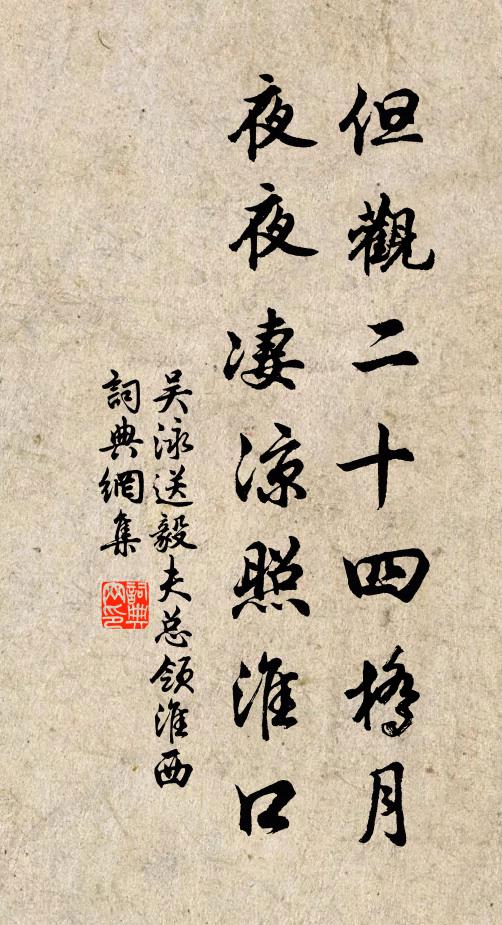 但觀二十四橋月
夜夜凄凉照淮口
吴泳送毅夫总领淮西
詞典網集
詞典网印